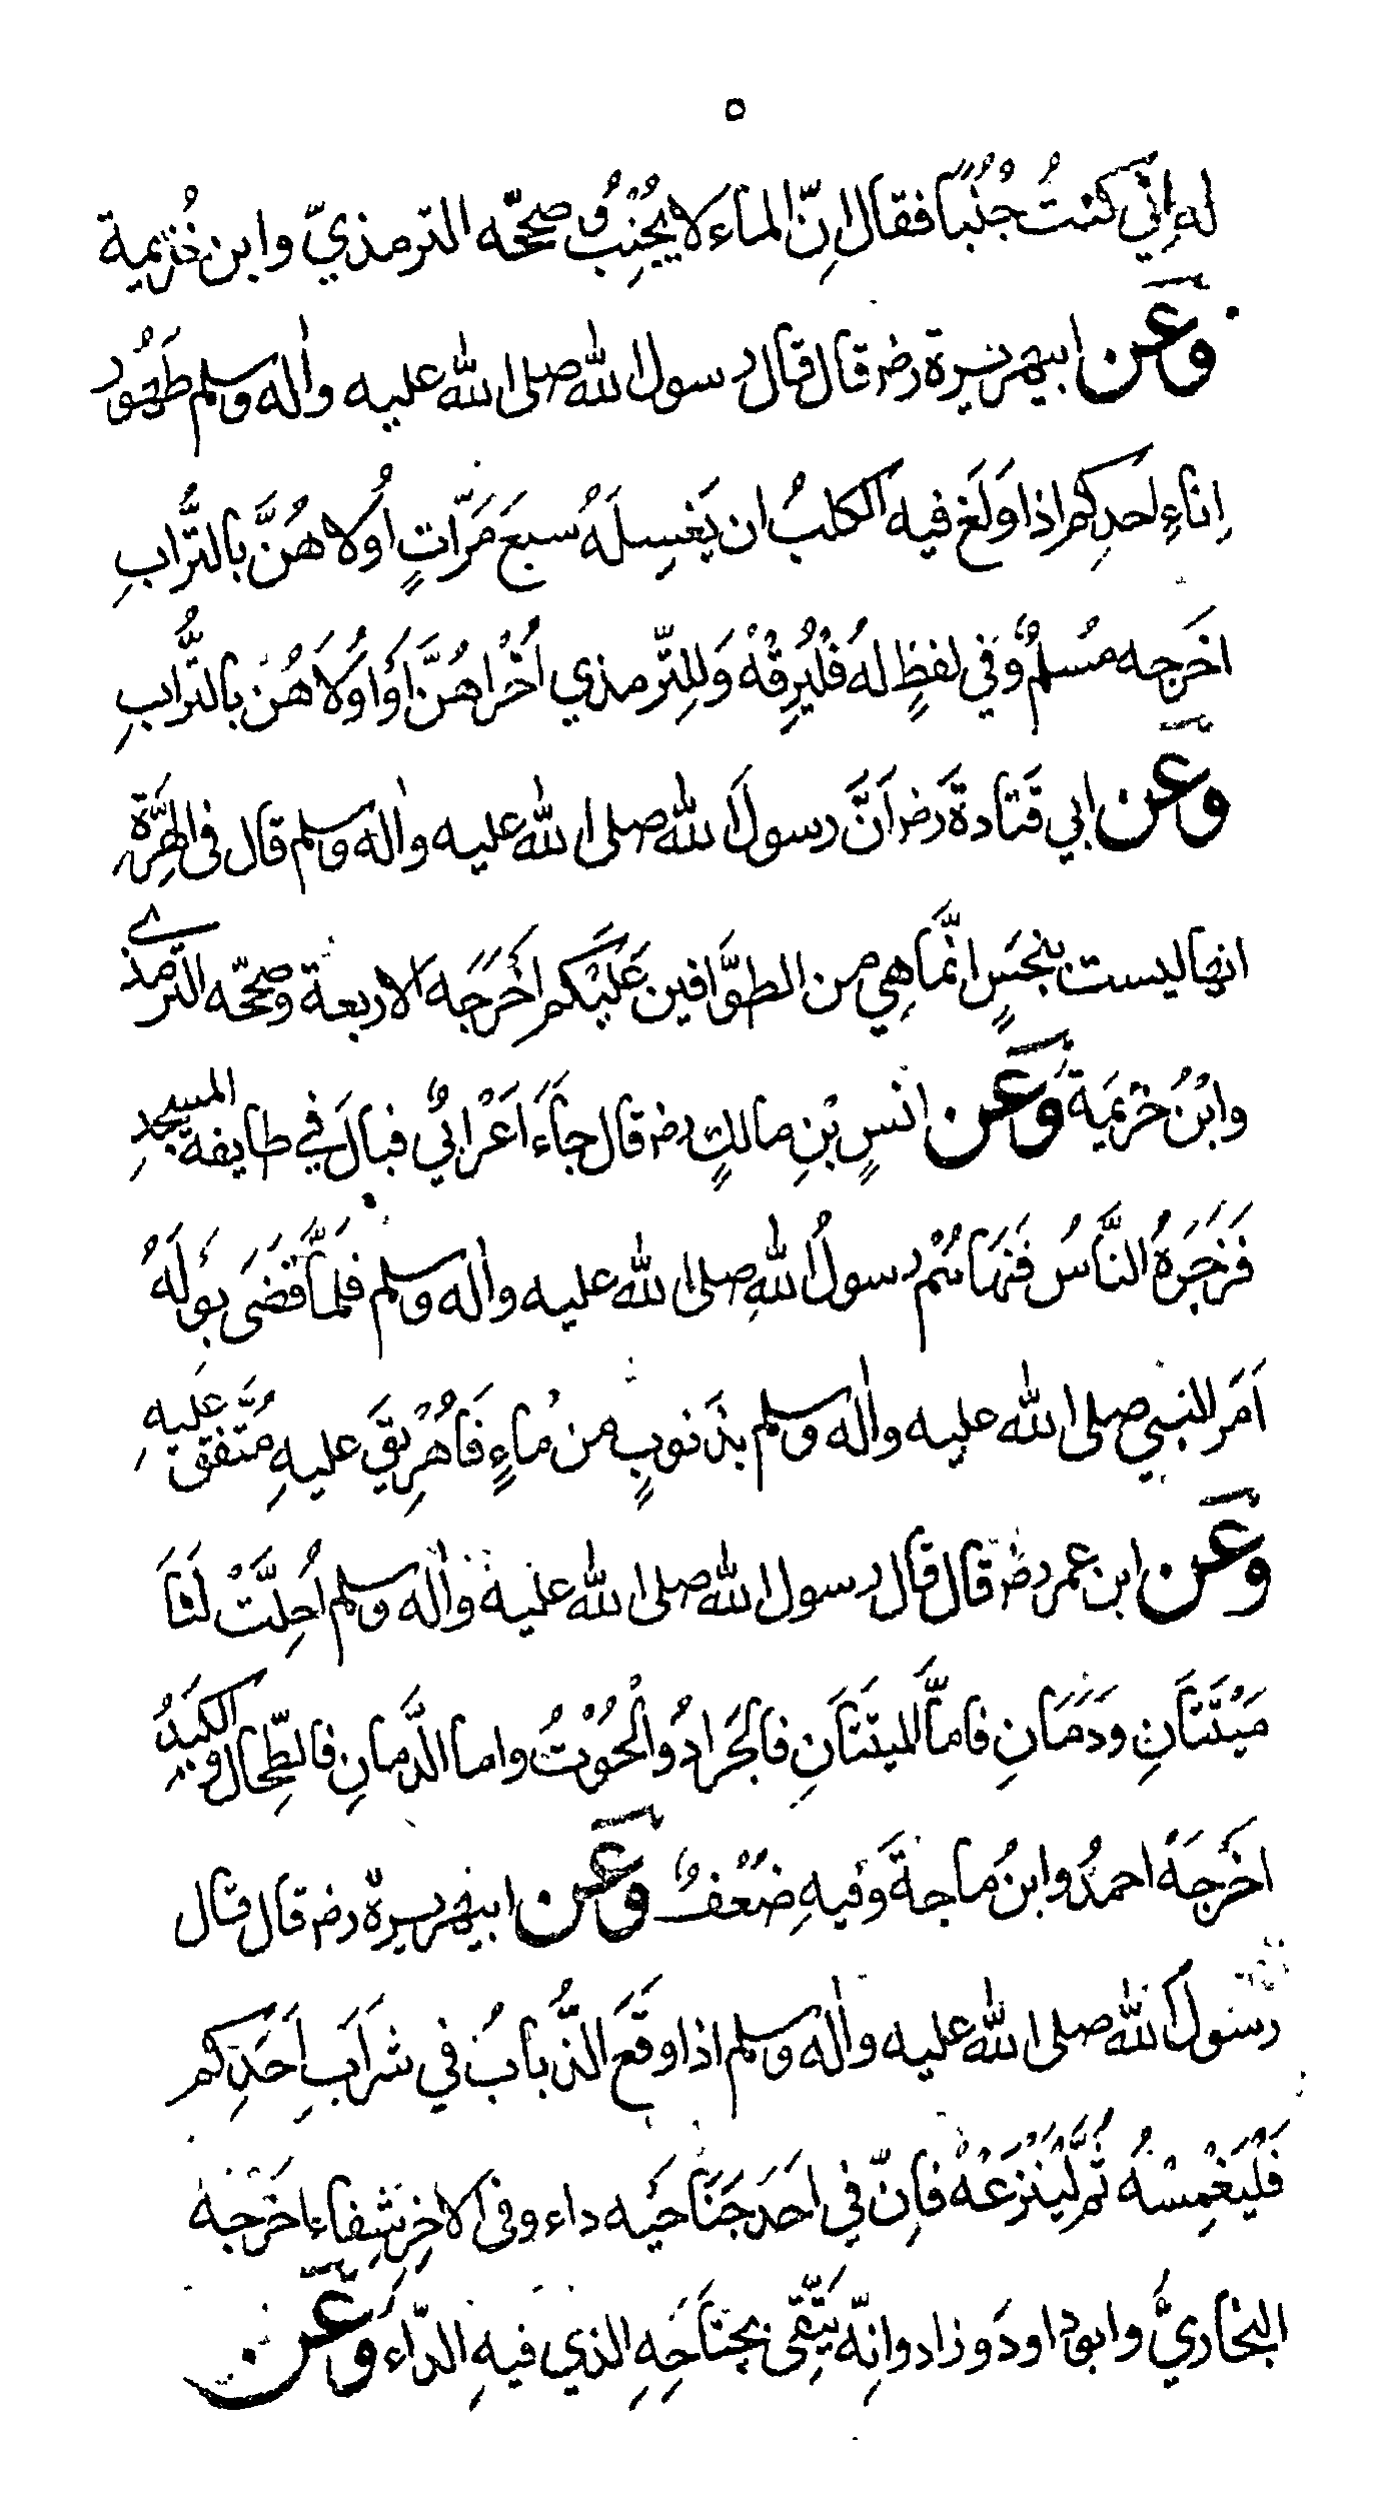 ٥
له إِنّي كنتُ جُنُبًا فقال اِنّ الماء لا يُجْنِبُ و صحّحه الترمذيّ وابن خُزيمة
وَعَن ابيهريرة رضر قال قال رسول الله صلى الله عليه واٰله وسلم طَهُوُر
اِناءِ احَدِكم اذا وَلَغ فيه الكلبُ ان يَغسِلَهُ سبعَ مَرّاتٍ اُولاهُنَّ بالتُّرابِ
اخَرجه مُسلمٌ وفي لفظٍ لهُ فَلْيُرِقْهُ وَللِتّرمذي اُخْراهُنَّ اَوْ اُولاَهُنَ بالتُّرابِ
وَعَن ابي قَتادةَ رَضر اَنَّ رسولَ الله صلى الله عليه واٰله وسلم قال فى الهِرَّة
انها ليست بنجَسٍ انَّما هِي من الطوَّافين عَلَيْكم اخَرجَه الاربعة وصحّحه الترمذي
وابْنُ خزيَمَةَ وَعَن انسٍ بْنِ مالكٍ رضر قال جاءَ اَعْرابيٌ فبالَ في طايفة المسجدِ
فَزَجَرَهُ النَّاسُ فَنَهَاهُم رسولُ اللهِ صلى الله عليه واٰله وسلم فلمَّا قَضَى بَوْلَهُ
اَمَر النبي صلى الله عليه واٰله وسلم بذَنوبٍ من ماءٍ فَاُهْرِيقَ عليهِ مُتَّفق عَليهِ
وَعَن ابن عمر رضر قال قال رسول الله صلى الله عليه واٰله وسلم اُحِلَّتْ لَنَا
مَيْتَتَانِ ودَمَانِ فامَّا الميتَتَانِ فالجَرادُ والْحُوْتُ واما الدَّمانِ فالطِّحالُ والكَبِدُ
اخَرجَهُ احمدُ وابنُ ماجةَ وَفيهِ ضُعْفٌ وَعَن ابيهريرة رضر قال قال
رسولُ الله صلى الله عليه واٰله وسلم اذا وقَعَ الذُّبابُ في شَرَابِ اَحَدِكم
فَلْيَغْمِسْهُ ثُمَّ لْيَنْزِعْهُ فاِنّ في احَدَ جَنَاحَيْه داء وفى الاخِرِ شِفاء اخَرَجهُ
البخاريُّ وابوداودَ وزاد وانّه يَتَّقى بجنَاحِهِ الذي فيهِ الدّاء وَعَن